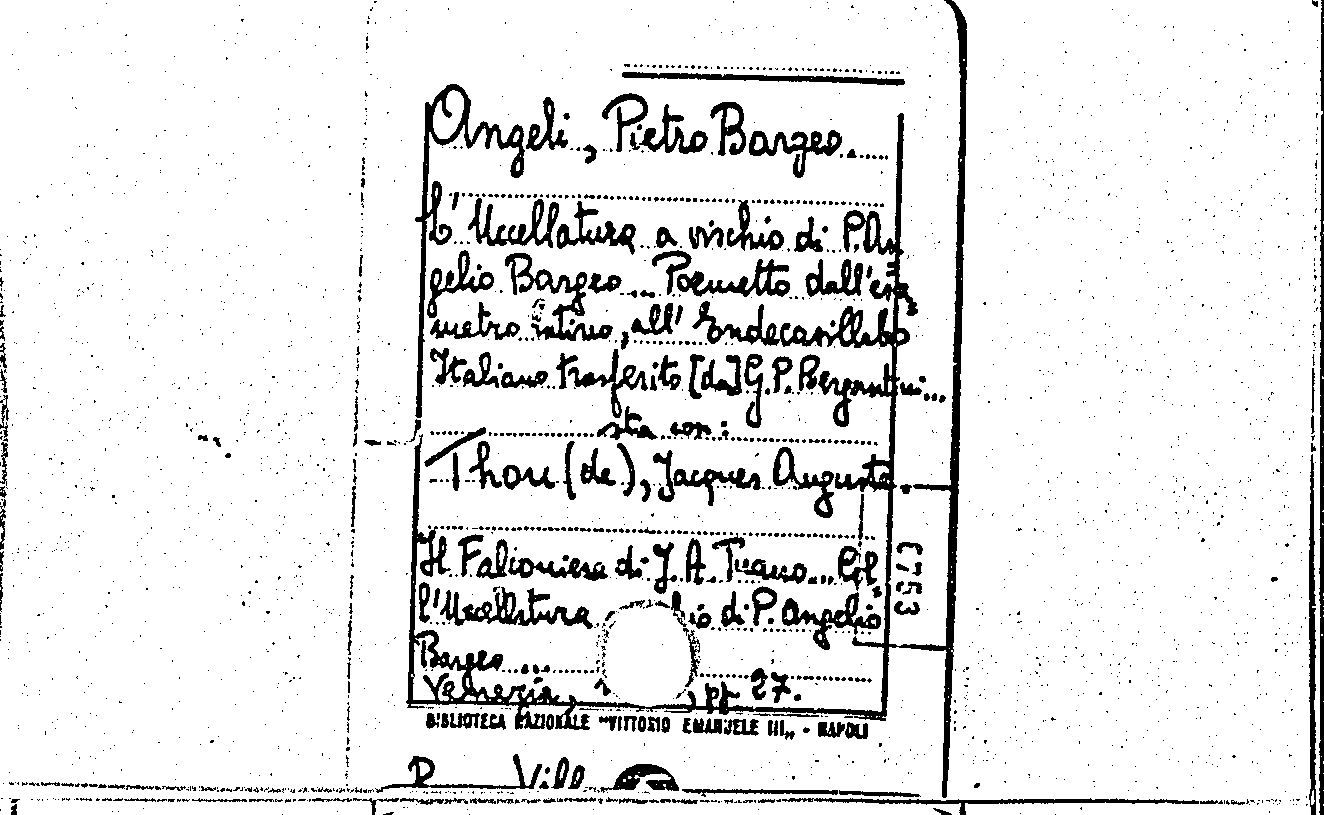 Angeli, Pietro Bargeo.
L' Uccellatura a vischio di P. An=
gelio Bargeo... Poemetto dall'esa=
metro latino, all' Endecasillabo
Italiano trasferito [da] G.P. Bergantini...
sta con:
Thou (de), Jacques Auguste.
Il Falconiere di J. A. Tuano... Col=
l'Uccellatura di P. Angelio
Bargeo...
Venezia, , pp 27.
BIBLIOTECA NAZIONALE "VITTORIO EMANUELE III„ - NAPOLI
R Vill